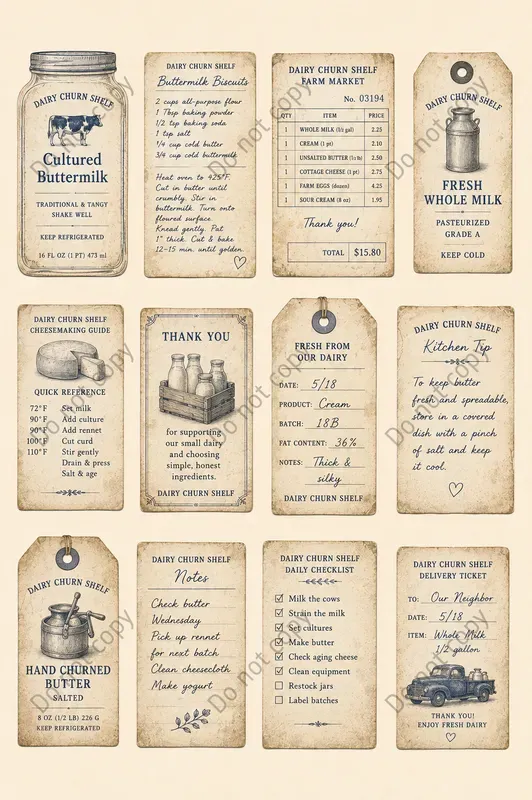 DAIRY CHURN SHELF
Cultured
Buttermilk
TRADITIONAL & TANGY
SHAKE WELL
KEEP REFRIGERATED
16 FL OZ (1 PT) 473 ml
DAIRY CHURN SHELF
Buttermilk Biscuits
2 cups all-purpose flour
1 Tbsp baking powder
1/2 tsp baking soda
1 tsp salt
1/4 cup cold butter
3/4 cup cold buttermilk
Heat oven to 425°F.
Cut in butter until
crumbly. Stir in
buttermilk. Turn onto
floured surface.
Knead gently. Pat
1" thick. Cut & bake
12-15 min. until golden.
DAIRY CHURN SHELF
FARM MARKET
No. 03194
QTY ITEM PRICE
1 WHOLE MILK (½ gal) 2.25
1 CREAM (1 pt) 2.10
1 UNSALTED BUTTER (½ lb) 2.50
1 COTTAGE CHEESE (1 pt) 2.75
1 FARM EGGS (dozen) 4.25
1 SOUR CREAM (8 oz) 1.95
Thank you!
TOTAL $15.80
DAIRY CHURN SHELF
FRESH
WHOLE MILK
PASTEURIZED
GRADE A
KEEP COLD
DAIRY CHURN SHELF
CHEESEMAKING GUIDE
QUICK REFERENCE
72°F Set milk
90°F Add culture
90°F Add rennet
100°F Cut curd
110°F Stir gently
Drain & press
Salt & age
THANK YOU
for supporting
our small dairy
and choosing
simple, honest
ingredients.
DAIRY CHURN SHELF
FRESH FROM
OUR DAIRY
DATE: 5/18
PRODUCT: Cream
BATCH: 18B
FAT CONTENT: 36%
NOTES: Thick &
silky
DAIRY CHURN SHELF
DAIRY CHURN SHELF
Kitchen Tip
To keep butter
fresh and spreadable,
store in a covered
dish with a pinch
of salt and keep
it cool.
DAIRY CHURN SHELF
HAND CHURNED
BUTTER
SALTED
8 OZ (1/2 LB) 226 G
KEEP REFRIGERATED
DAIRY CHURN SHELF
Notes
Check butter
Wednesday
Pick up rennet
for next batch
Clean cheesecloth
Make yogurt
DAIRY CHURN SHELF
DAILY CHECKLIST
Milk the cows
Strain the milk
Set cultures
Make butter
Check aging cheese
Clean equipment
Restock jars
Label batches
DAIRY CHURN SHELF
DELIVERY TICKET
TO: Our Neighbor
DATE: 5/18
ITEM: Whole Milk
1/2 gallon
THANK YOU!
ENJOY FRESH DAIRY
Do not copy
Do not copy
Do not copy
Do not copy
Do not copy
Do not copy
Do not copy
Do not copy
Do not copy